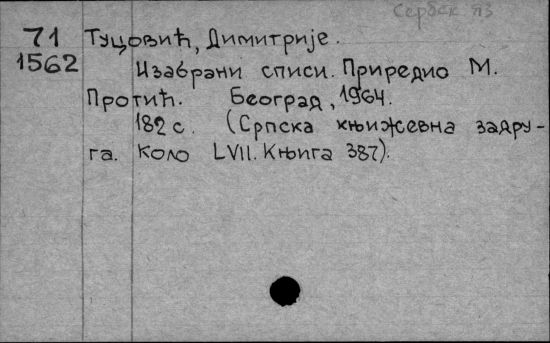 Сербск яз
71
1562
Туцовић, Димитрије.
Изабрани списи. Приредио М.
Протић. Београд, 1964.
182 с. (Српска књижевна задру-
га. Коло LVII. Књига 387).